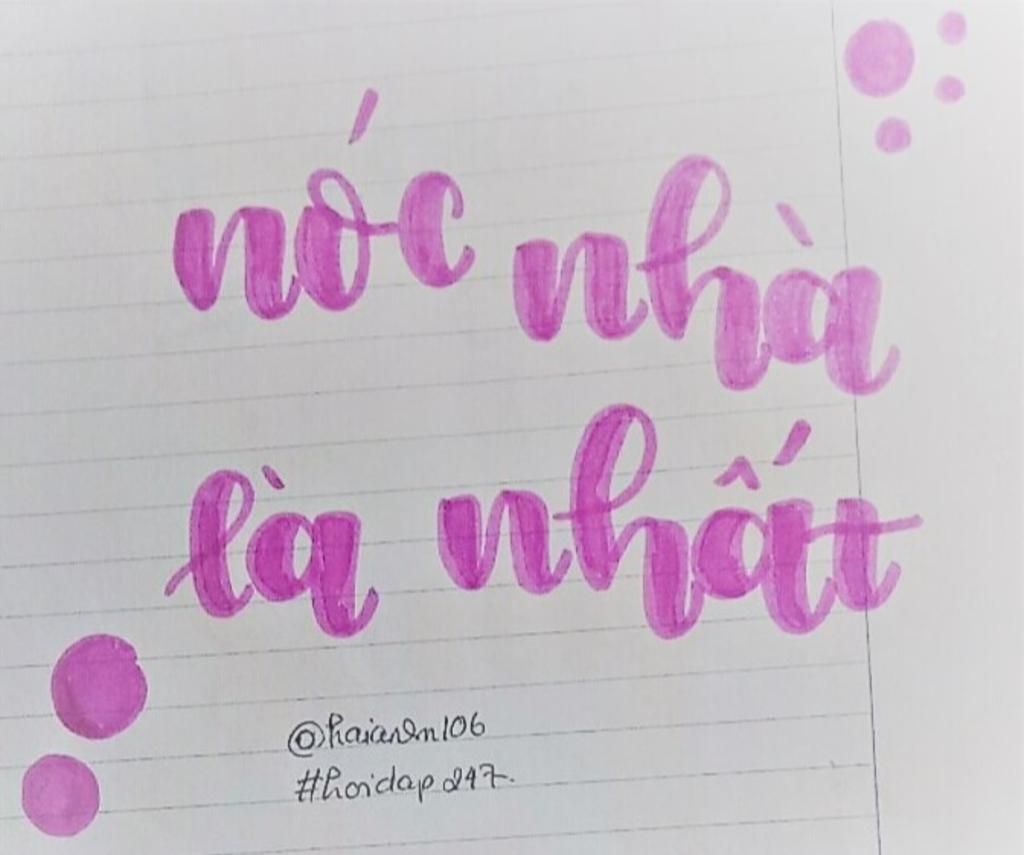 nóc nhà
là nhất
@haianem106
#hoidap247.